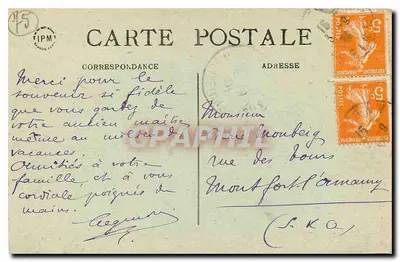 75
IPM
CARTE POSTALE
CORRESPONDANCE
ADRESSE
Merci pour le
souvenir si fidèle
que vous gardez de
votre ancien maître
même au milieu des
vacances.
Amitiés à votre
famille, et à vous
cordiale poignée de
mains.
Monsieur
rue des Tours
Montfort l'Amaury
(S & O)
5c
POSTES
5c
POSTES
CPAPHIL